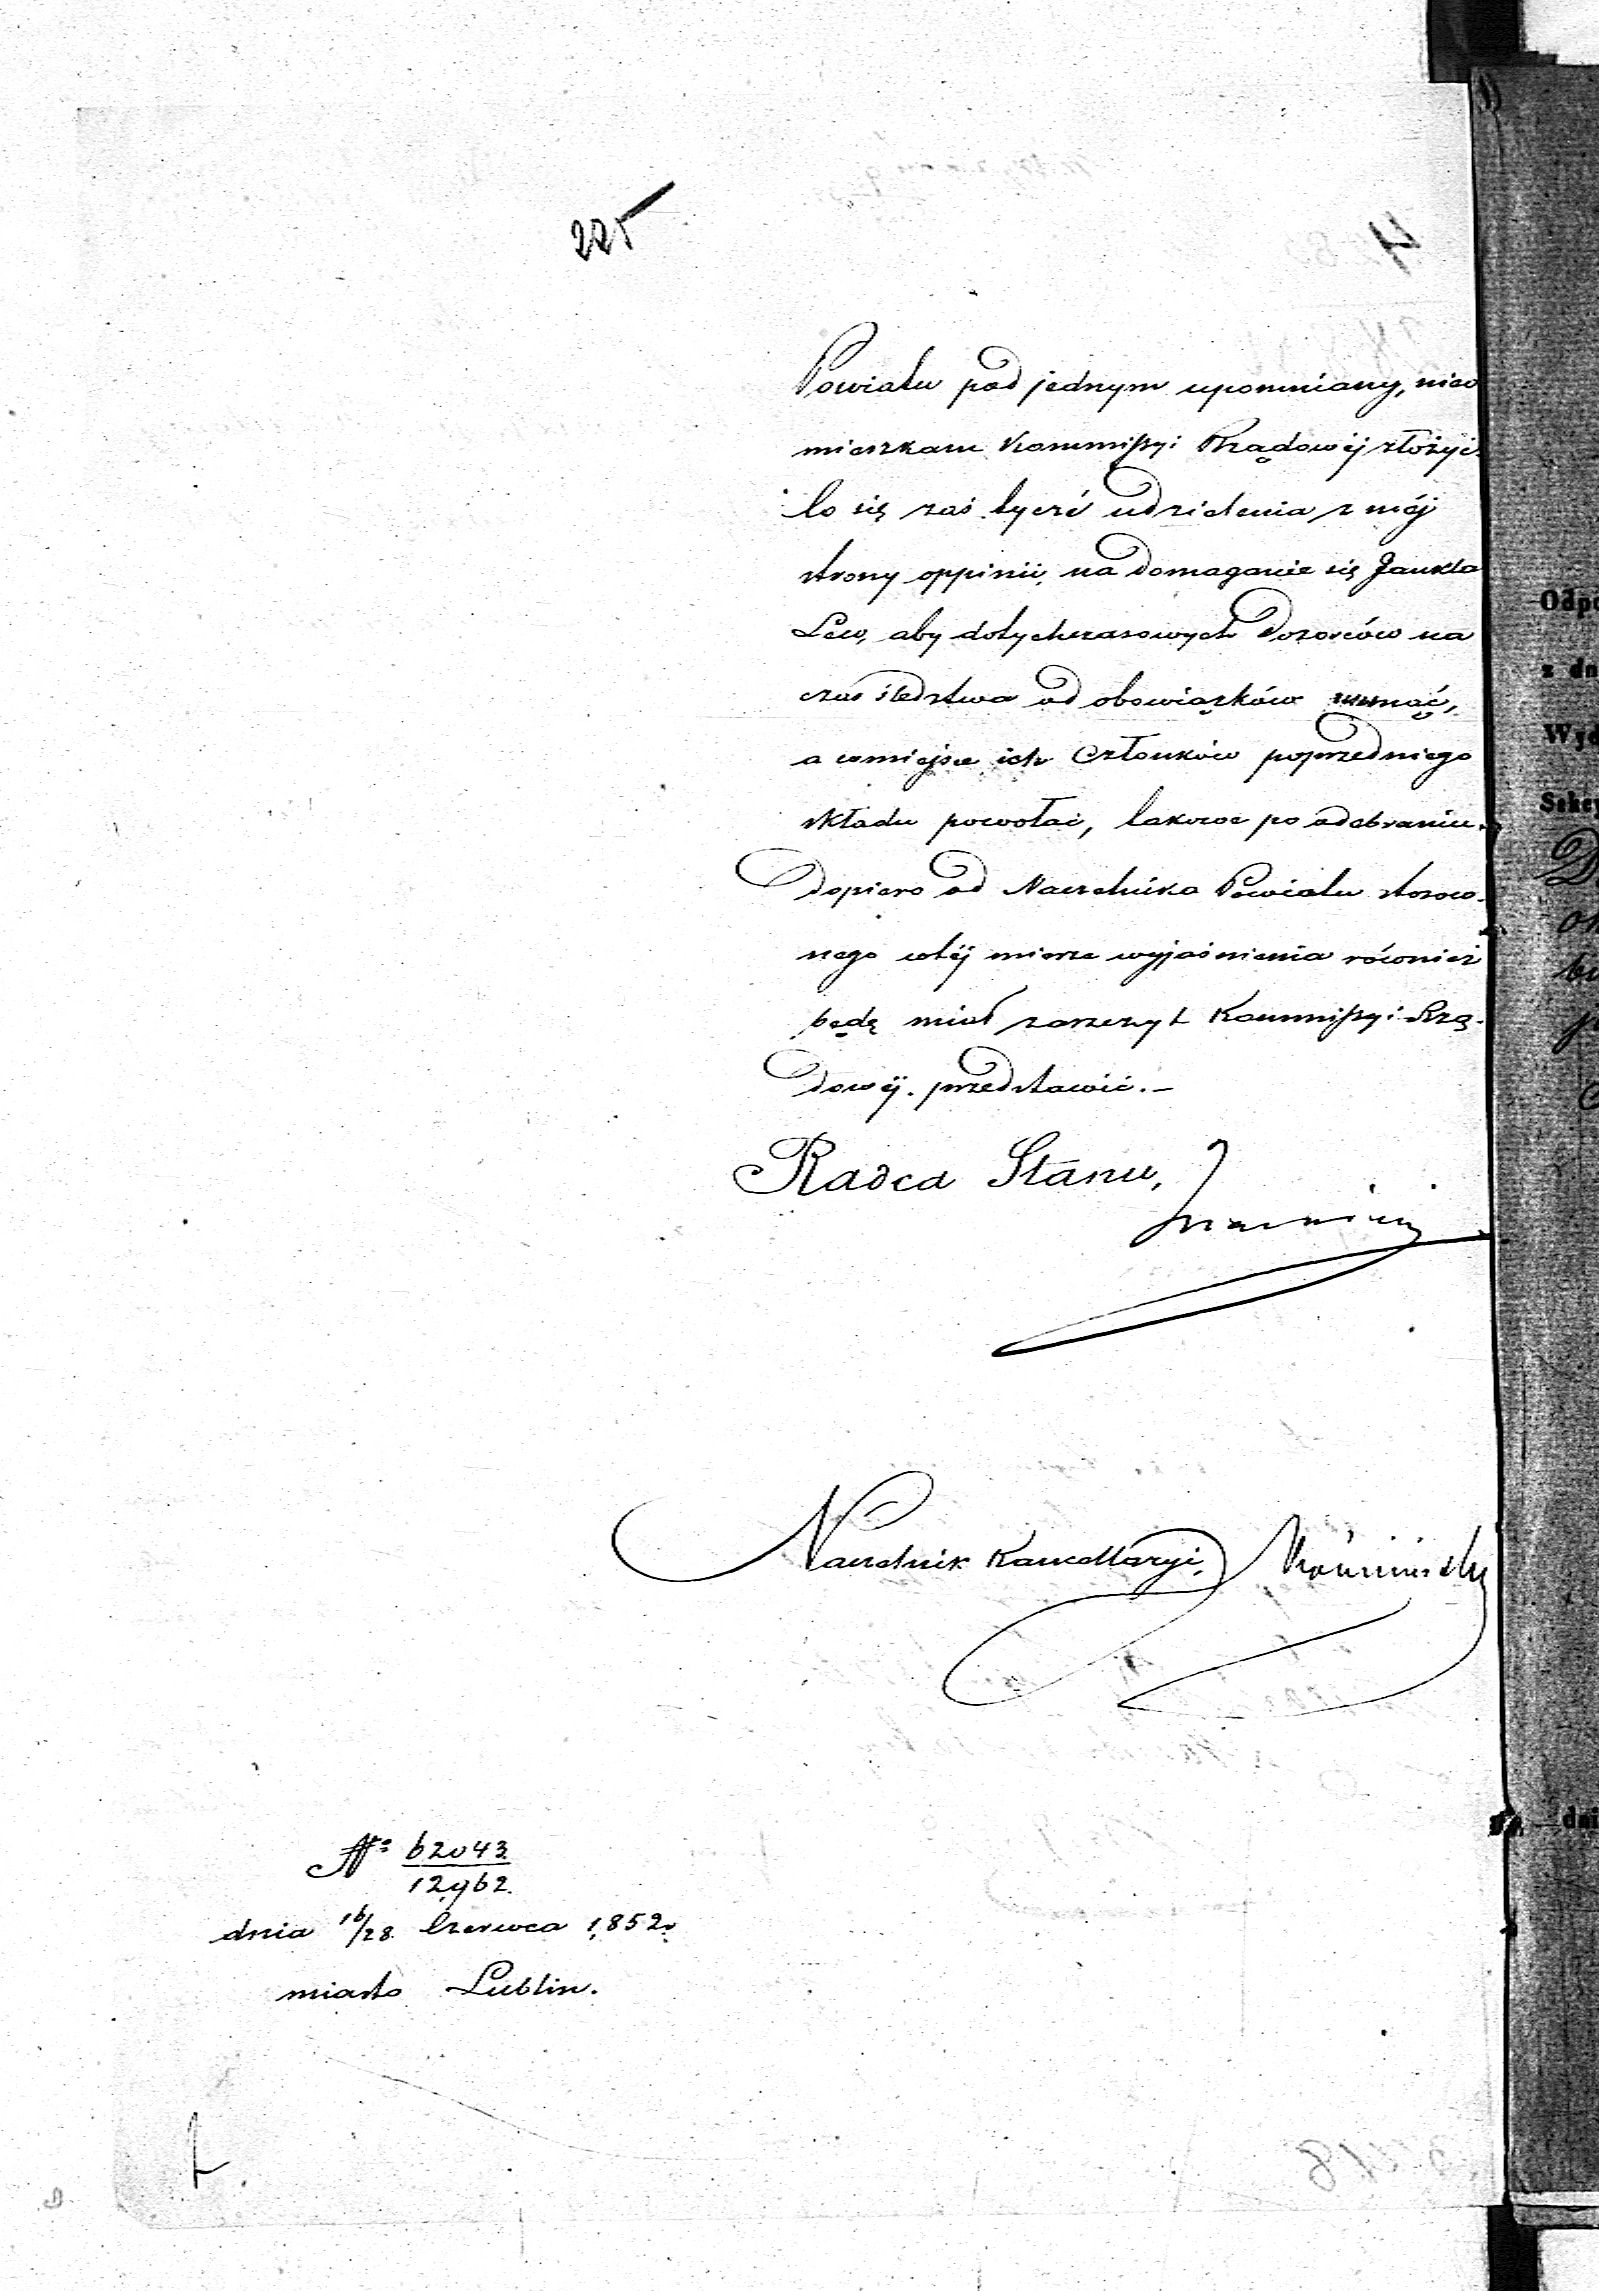 225
Powiatu pod jednym upomniany, nieo
mieszkam Kommissyi Rządowéj złożyć.
Co się zaś tycze udzielenia z méj
strony oppinii, na domaganie się Jankla
Lew, aby dotychczasowych Dozorców na
czas śledztwa od obowiązków usunąć,
a w miejsce ich Członków poprzedniego
składu powołać, takowe po odebraniu
dopiero od Naczelnika Powiatu stosow-
nego w téj mierze wyjaśnienia również
będę miał zaszczyt Kommissyi Rzą-
dowéj przedstawić.—
Radca Stanu,
Naczelnik Kancellaryi,
No 62043
12962.
dnia 16/28 Czerwca 1852r
miasto Lublin.
Odp
z dn
Wyd
Sekcy
dni